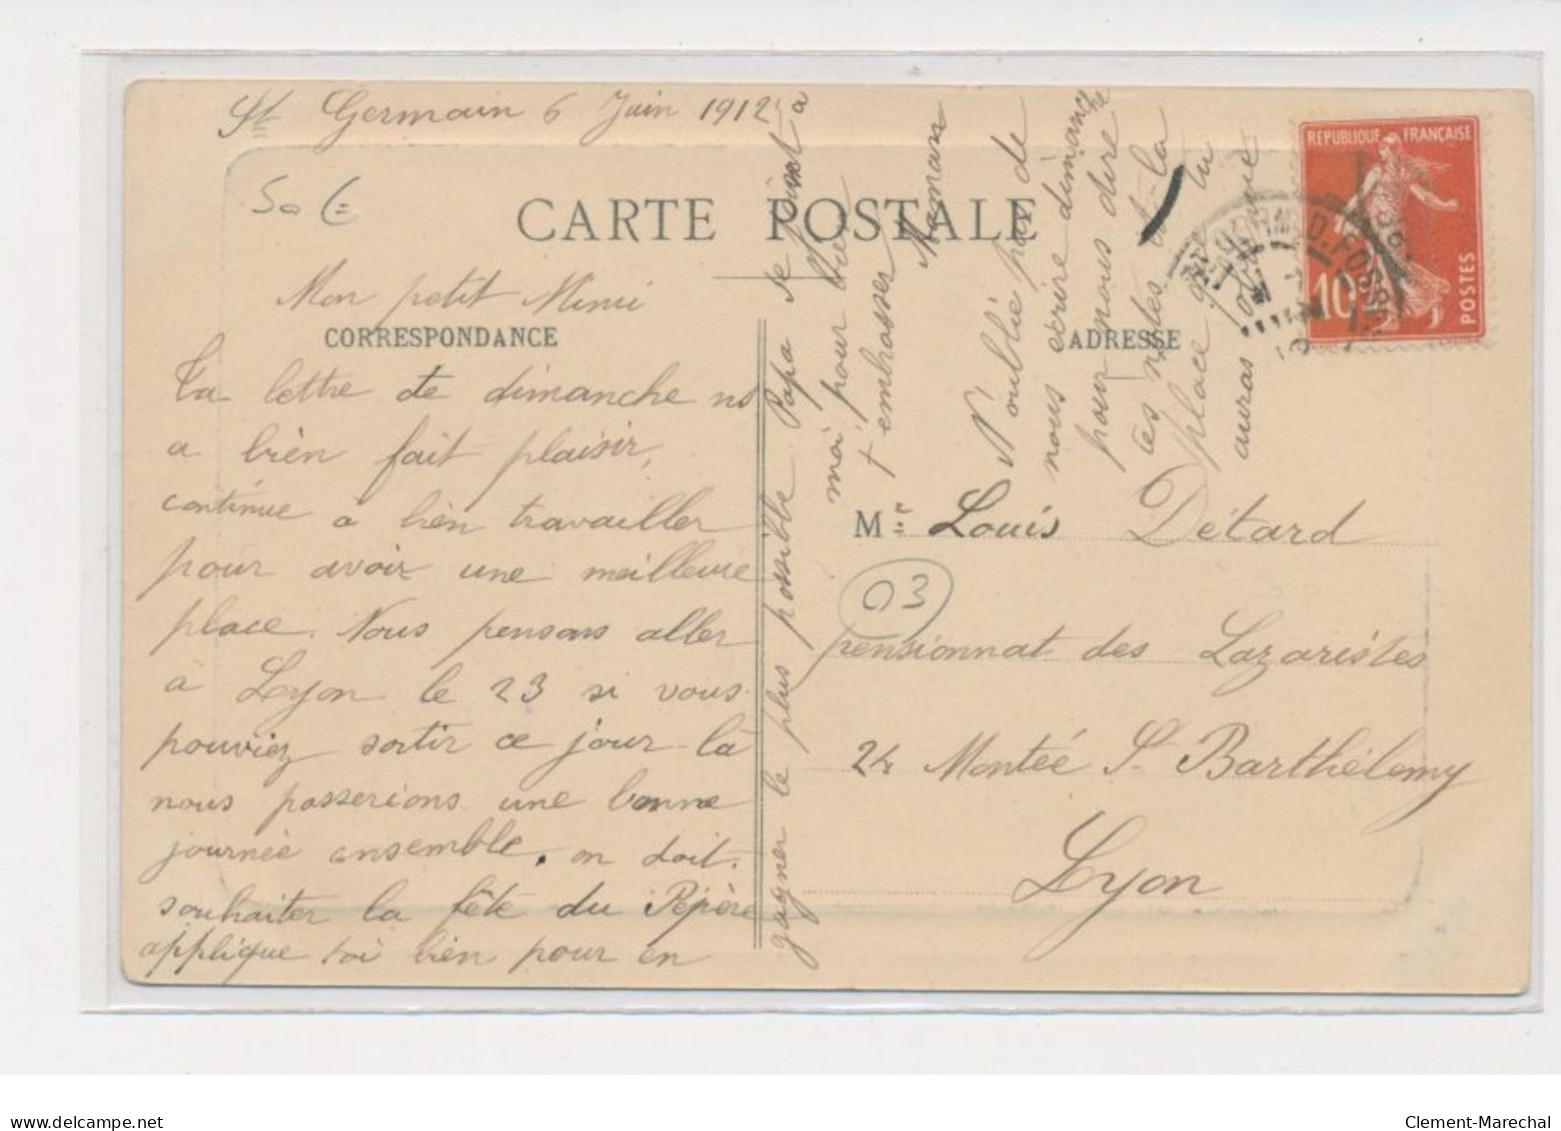 St Germain 6 Juin 1912
CARTE POSTALE
Mon petit Mimi
CORRESPONDANCE
Ta lettre de dimanche ns
a bien fait plaisir,
continue a bien travailler
pour avoir une meilleure
place. Nous pensons aller
à Lyon le 23 si vous
pouviez sortir ce jour là
nous passerions une bonne
journée ensemble. on doit
souhaiter la fête du Pépère
applique toi bien pour en
gagner le plus possible Papa se joint a
moi pour
t'embrasser
Maman
N'oublie pas de
nous écrire dimanche
pour nous dire
tes notes et la
place q. tu
auras
ADRESSE
Mr Louis Détard
03
pensionnat des Lazaristes
24 Montée St Barthélemy
Lyon
REPUBLIQUE FRANÇAISE
10c
POSTES
delcampe.net
Clement-Marechal